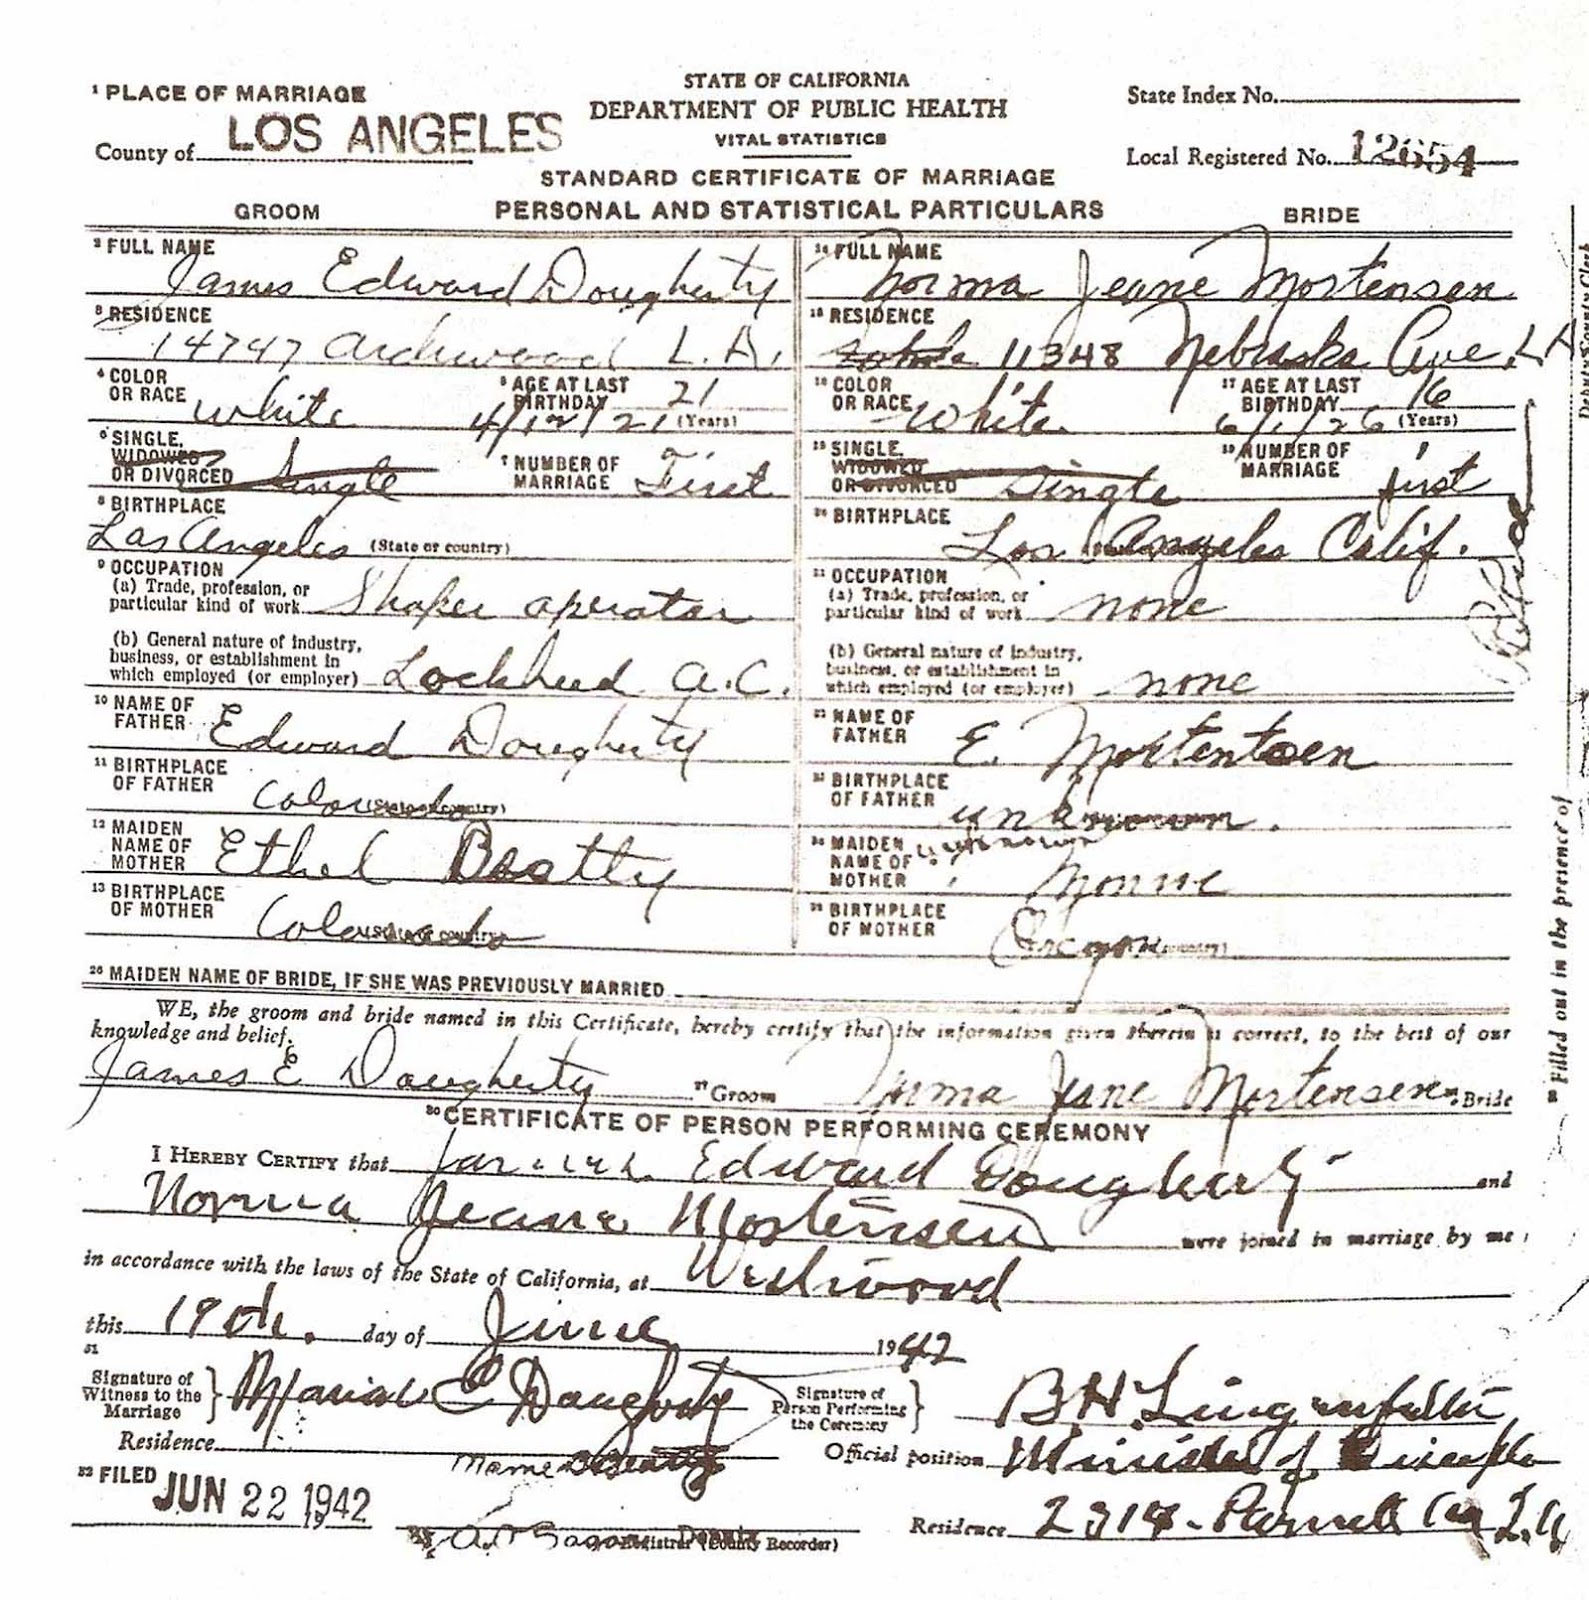 STATE OF CALIFORNIA
DEPARTMENT OF PUBLIC HEALTH
VITAL STATISTICS
1 PLACE OF MARRIAGE
County of LOS ANGELES
State Index No.
Local Registered No. 12654
STANDARD CERTIFICATE OF MARRIAGE
GROOM PERSONAL AND STATISTICAL PARTICULARS BRIDE
2 FULL NAME James Edward Dougherty
3 RESIDENCE 14747 Archwood L.A.
4 COLOR OR RACE white
5 AGE AT LAST BIRTHDAY 21 (Years) 4/12/21
6 SINGLE, WIDOWED OR DIVORCED Single
7 NUMBER OF MARRIAGE First
8 BIRTHPLACE Los Angeles (State or country)
9 OCCUPATION
(a) Trade, profession, or
particular kind of work Shaper operator
(b) General nature of industry,
business, or establishment in
which employed (or employer) Lockheed A.C.
10 NAME OF FATHER Edward Dougherty
11 BIRTHPLACE OF FATHER Colorado (State or country)
12 MAIDEN NAME OF MOTHER Ethel Beatty
13 BIRTHPLACE OF MOTHER Colorado (State or country)
14 FULL NAME Norma Jeane Mortensen
15 RESIDENCE 11348 Nebraska Ave. L A
16 COLOR OR RACE White
17 AGE AT LAST BIRTHDAY 16 (Years) 6/1/26
18 SINGLE, WIDOWED OR DIVORCED Single
19 NUMBER OF MARRIAGE first
20 BIRTHPLACE Los Angeles Calif.
21 OCCUPATION
(a) Trade, profession, or
particular kind of work none
(b) General nature of industry,
business, or establishment in
which employed (or employer) none
22 NAME OF FATHER E. Mortensen
23 BIRTHPLACE OF FATHER unknown.
24 MAIDEN NAME OF MOTHER Monroe
25 BIRTHPLACE OF MOTHER Oregon
26 MAIDEN NAME OF BRIDE, IF SHE WAS PREVIOUSLY MARRIED
WE, the groom and bride named in this Certificate, hereby certify that the information given therein is correct, to the best of our
knowledge and belief.
James E Dougherty Groom Norma Jeane Mortensen Bride
30 CERTIFICATE OF PERSON PERFORMING CEREMONY
I HEREBY CERTIFY that James Edward Dougherty and
Norma Jeane Mortensen were joined in marriage by me
in accordance with the laws of the State of California, at Westwood
this 19th. day of June 1942
31
Signature of
Witness to the
Marriage } Marion C Dougherty
Residence
Signature of
Person Performing
the Ceremony } B H Lingenfelter
Official position Minister of
Residence 2314 Parnell Ave L.A
32 FILED JUN 22 1942
Registrar (County Recorder)
Filled out in the presence of
Deputy County Clerk